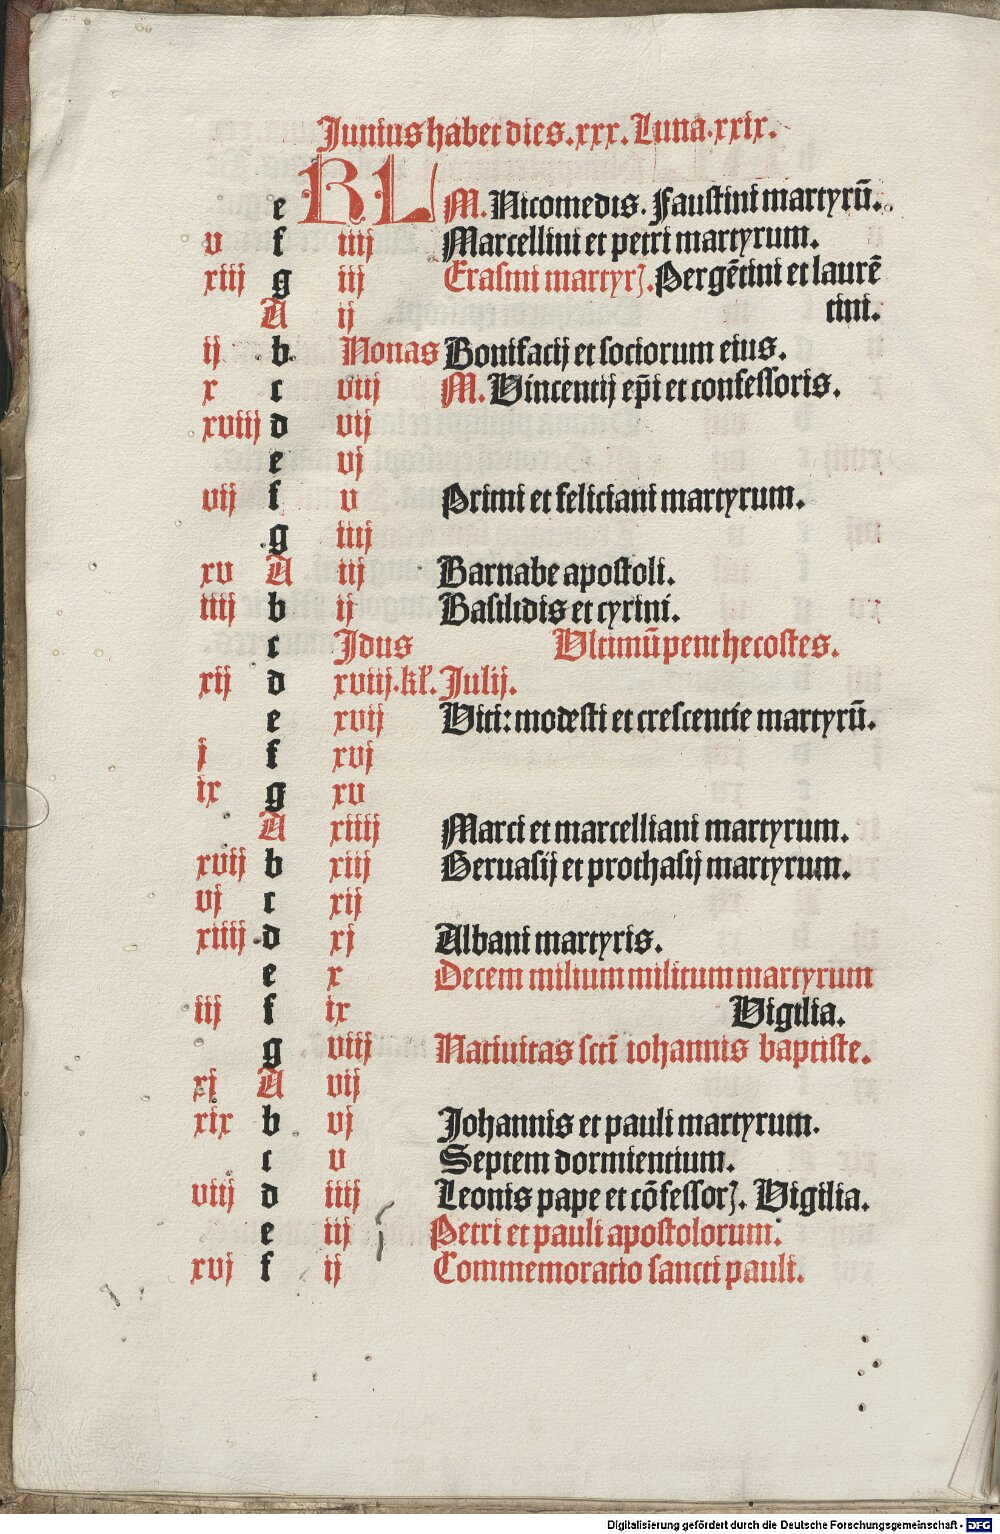 Junius habet dies.xxx. Luna.xxix.
e KL M. Nicomedis. Faustini martyrū.
v f iiij Marcellini et petri martyrum.
xiij g iij Erasmi martyrꝝ. Pergētini et laurē
A ij tini.
ij b Nonas Bonifacij et sociorum eius.
x c viij M. Vincentij ep̄i et confessoris.
xviij d vij
e vj
vij f v Primi et feliciani martyrum.
g iiij
xv A iij Barnabe apostoli.
iiij b ij Basilidis et cyrini.
c Jdus Vltimū penthecostes.
xij d xviij.kl̓. Julij.
e xvij Viti: modesti et crescentie martyrū.
j f xvj
ix g xv
A xiiij Marci et marcelliani martyrum.
xvij b xiij Geruasij et prothasij martyrum.
vj c xij
xiiij d xj Albani martyris.
e x Decem milium militum martyrum
iij f ix Vigilia.
g viij Natiuitas scti̅ iohannis baptiste.
xj A vij
xix b vj Johannis et pauli martyrum.
c v Septem dormientium.
viij d iiij Leonis pape et cōfessorꝝ. Vigilia.
e iij Petri et pauli apostolorum.
xvj f ij Commemoratio sancti pauli.
Digitalisierung gefördert durch die Deutsche Forschungsgemeinschaft - DFG